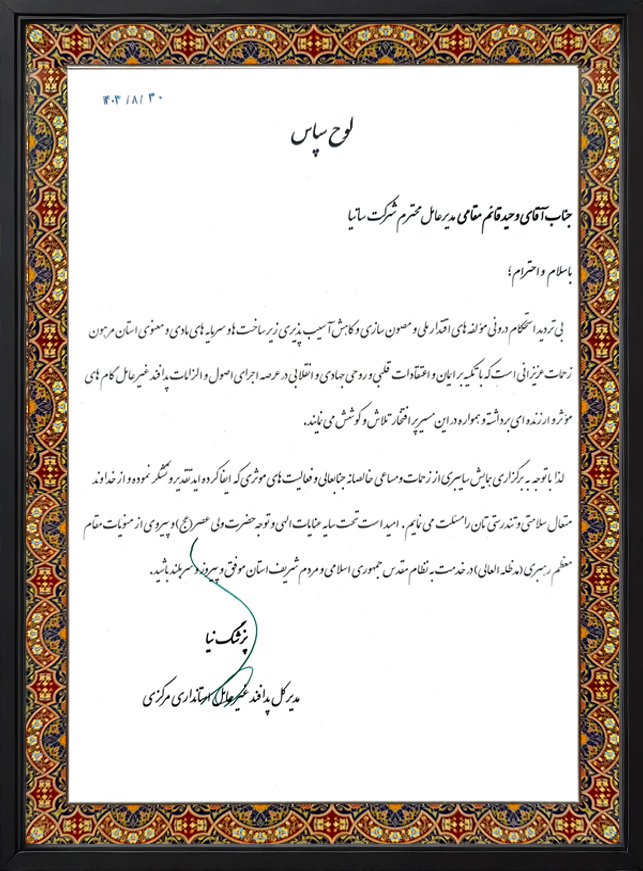 ۱۴۰۳/۸/۳۰
لوح سپاس
جناب آقای وحید قائم مقامی مدیرعامل محترم شرکت ساتیا
باسلام و احترام؛
بی تردید استحکام درونی مؤلفه های اقتدار ملی و مصون سازی و کاهش آسیب پذیری زیرساخت ها و سرمایه های مادی و معنوی استان مرهون
زحمات عزیزانی است که با تکیه بر ایمان و اعتقادات قلبی و روحی جهادی و انقلابی در عرصه اجرای اصول و الزامات پدافند غیرعامل گام های
مؤثر و ارزنده ای برداشته و همواره در این مسیر پر افتخار تلاش و کوشش می نمایند.
لذا با توجه به برگزاری همایش سایبری از زحمات و مساعی خالصانه جنابعالی و فعالیت های موثری که ایفا کرده اید تقدیر و تشکر نموده و از خداوند
متعال سلامتی و تندرستی تان را مسئلت می نمایم. امید است تحت سایه عنایات الهی و توجه حضرت ولی عصر(عج) و پیروی از منویات مقام
معظم رهبری (مدظله العالی) در خدمت به نظام مقدس جمهوری اسلامی و مردم شریف استان موفق و پیروز و سربلند باشید.
پزشک نیا
مدیرکل پدافند غیرعامل استانداری مرکزی